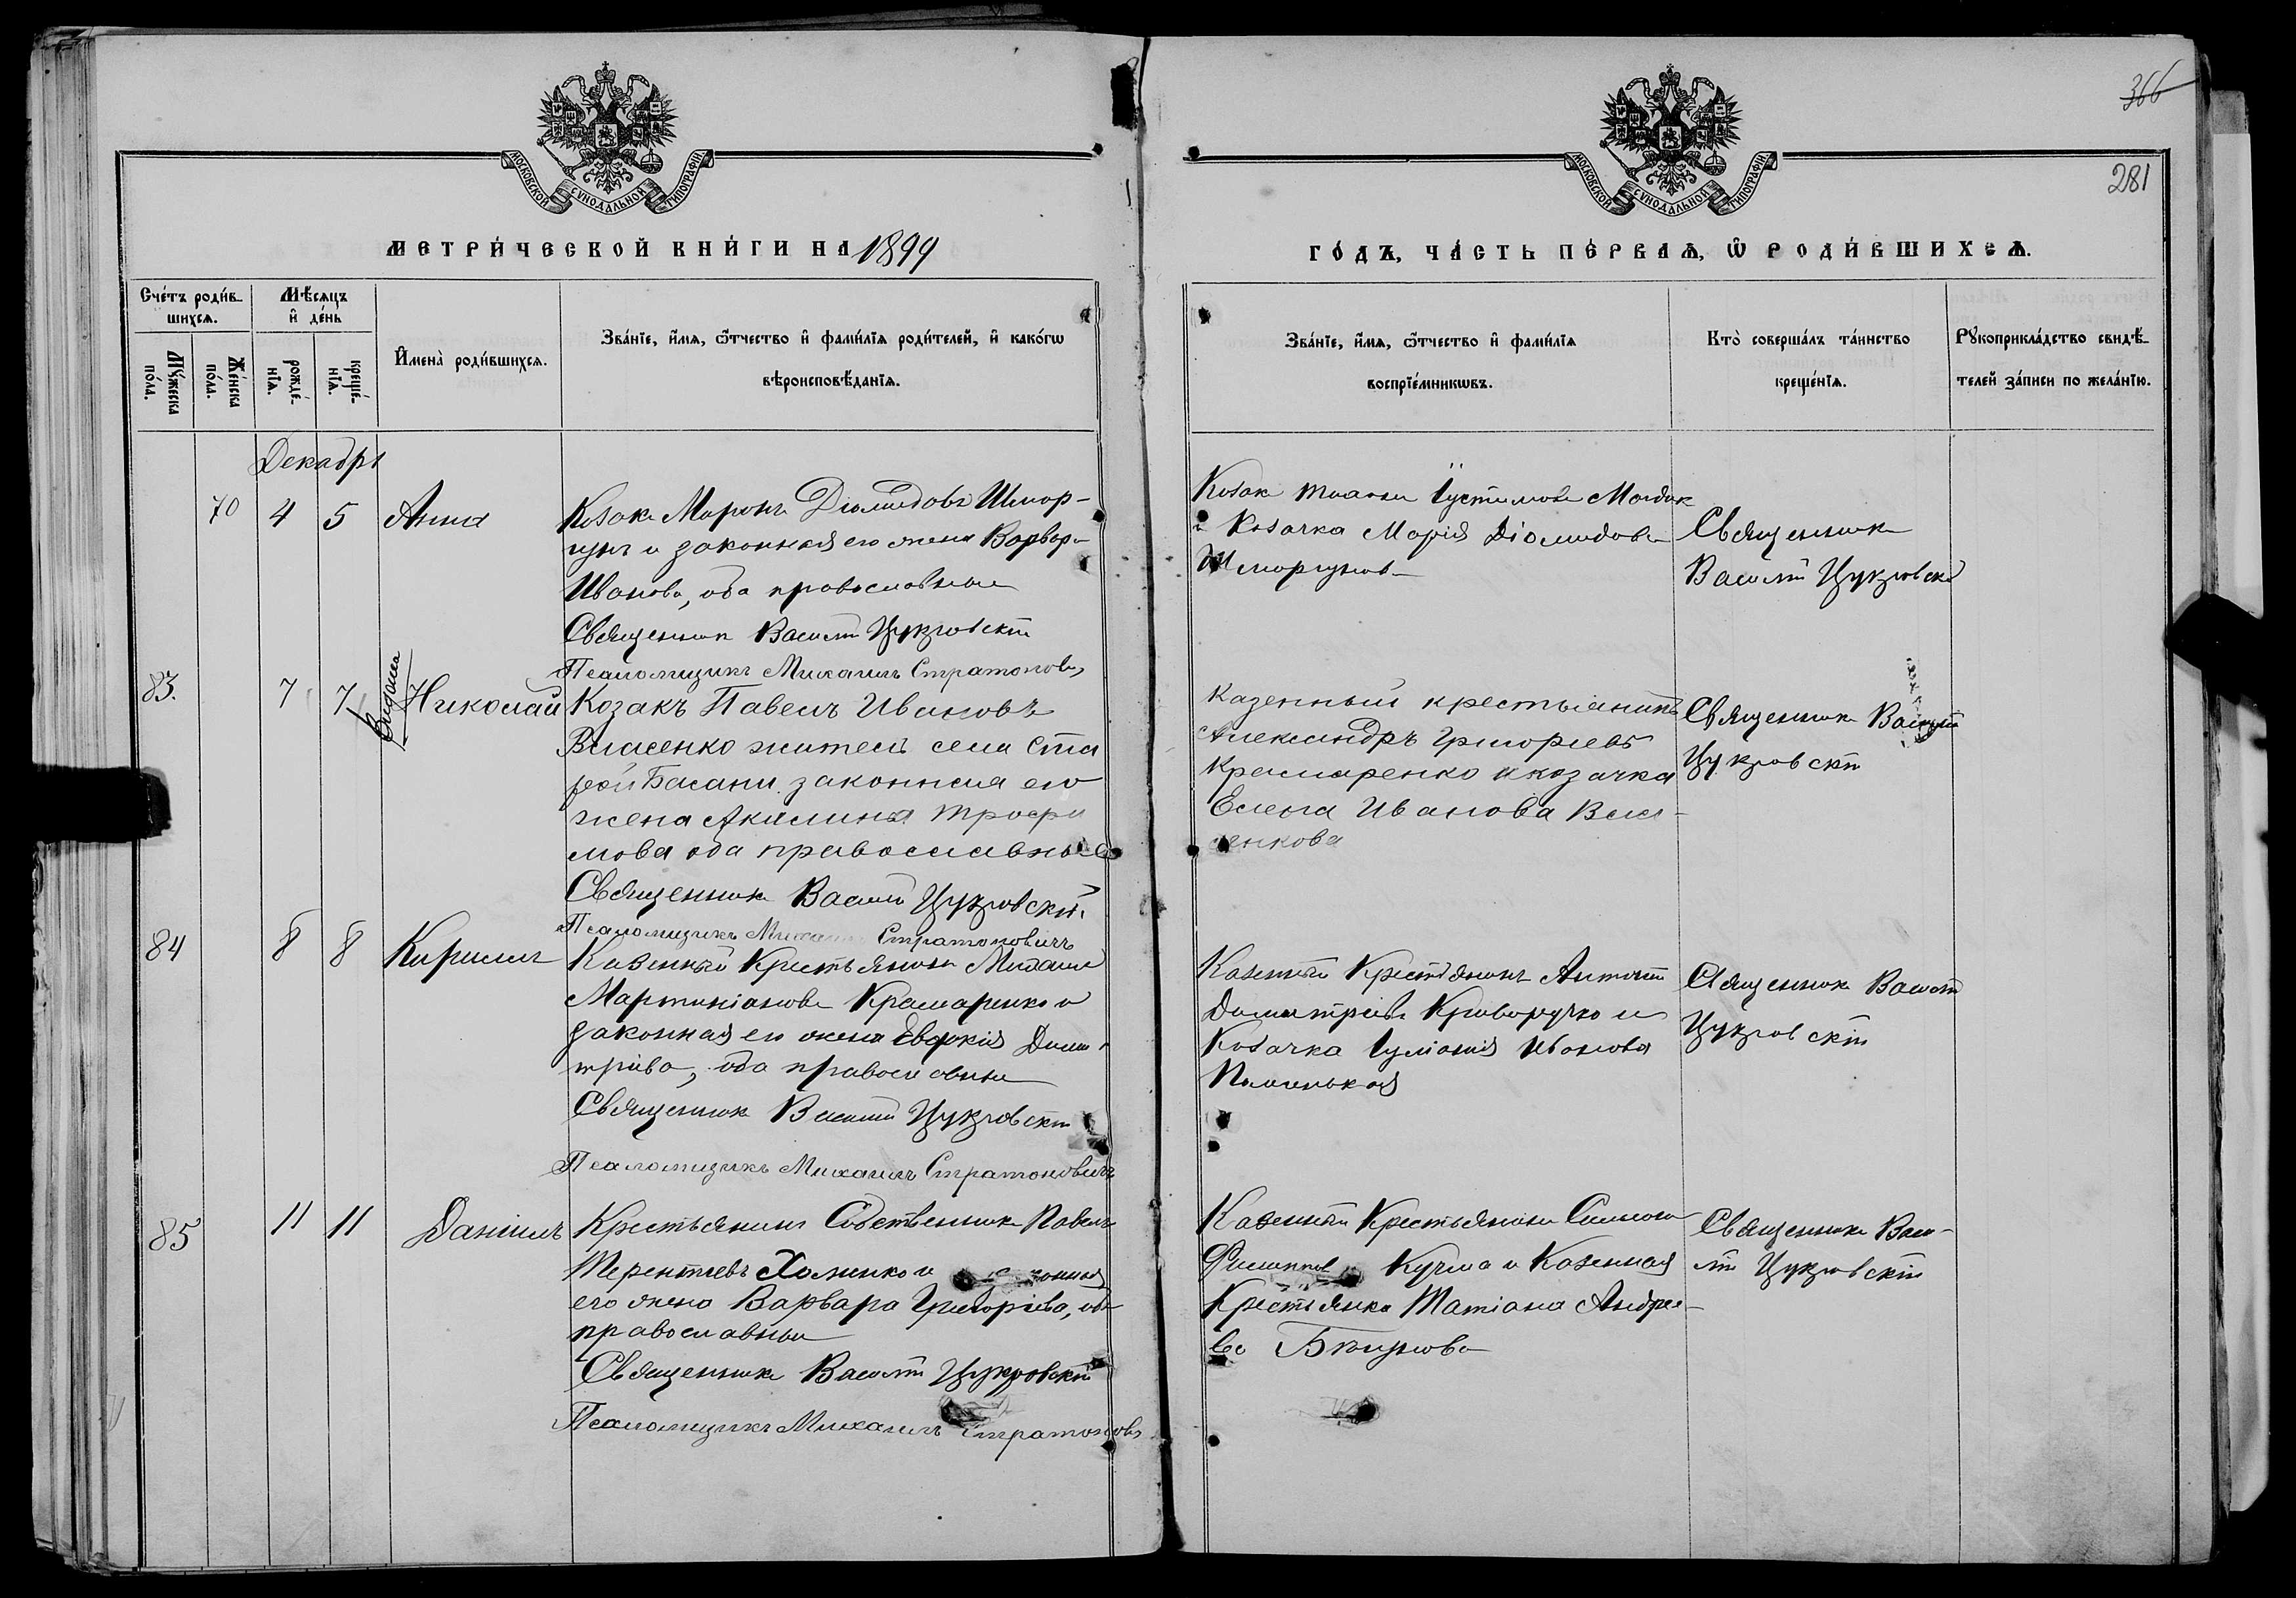 366
281
МОСКОВСКОЙ СѴНОДАЛЬНОЙ ТИПОГРАФІИ.
МОСКОВСКОЙ СѴНОДАЛЬНОЙ ТИПОГРАФІИ.
МЕТРИ́ЧЕСКОЙ КНИ́ГИ НА 1899
ГО́ДЪ, ЧА́СТЬ ПЕ́РВАѦ, Ѡ РОДИ́ВШИХСѦ.
Сче́тъ роди́в-
шихсѧ.
Му́жеска по́ла.
Же́нска по́ла.
Мѣ́сѧцъ
и де́нь
рожде́-
нїѧ.
креще́-
нїѧ.
Имена̀ роди́вшихсѧ.
Зва́нїе, и́мѧ, ѻ́тчество и фами́лїѧ роди́телей, и како́гѡ
вѣроисповѣ́данїѧ.
Зва́нїе, и́мѧ, ѻ́тчество и фами́лїѧ
воспрїе́мникѡвъ.
Кто̀ соверша́лъ та́инство
креще́нїѧ.
Рꙋкоприкла́дство свидѣ́-
телей за́писи по жела́нїю.
Декабрь
70 4 5 Анна
Козакъ Миронъ Діомидовъ Шмор-
гунъ и законная его жена Варвара
Иванова, оба православные
Священник Василій Цукровскій
Псаломщикъ Михаилъ Стратоновъ
Козак Іустимовъ
и Козачка Марія Діомидова
Шморгунова
Священник
Василій Цукровскій
83. 7 7 Выдана Николай
Козакъ Павелъ Ивановъ
Власенко житель села Ста
рой Басани законная его
жена Акилина Трофи
мова оба православные
Священникъ Василій Цукровскій
Псаломщикъ Михаилъ Стратоновичъ
Казенный крестьянинъ
Александръ Григорьевъ
Крамаренко и козачка
Елена Иванова Влас-
енкова
Священник Василій
Цукровскій
84 8 8 Кирилл
Казенный Крестьянинъ Михаил
Мартиніановъ Крамаренко и
законная его жена Евдокія Дими
тріева, оба православные
Священник Василій Цукровскій
Псаломщикъ Михаилъ Стратоновичъ
Казенный Крестьянинъ Антоній
Димитріевъ Криворучко и
Козачка Іуліанія Иванова
Священник Василій
Цукровскій
85 11 11 Даніилъ
Крестьянинъ Собственник Павелъ
Терентіевъ Хоменко и законная
его жена Варвара Григоріева, оба
православные
Священникъ Василій Цукровскій
Псаломщикъ Михаилъ Стратоновъ
Казенный Крестьянинъ Симеон
Филиппов Кучма и Казенная
Крестьянка Татіана Андрее-
ва
Священникъ Васи-
лій Цукровскій